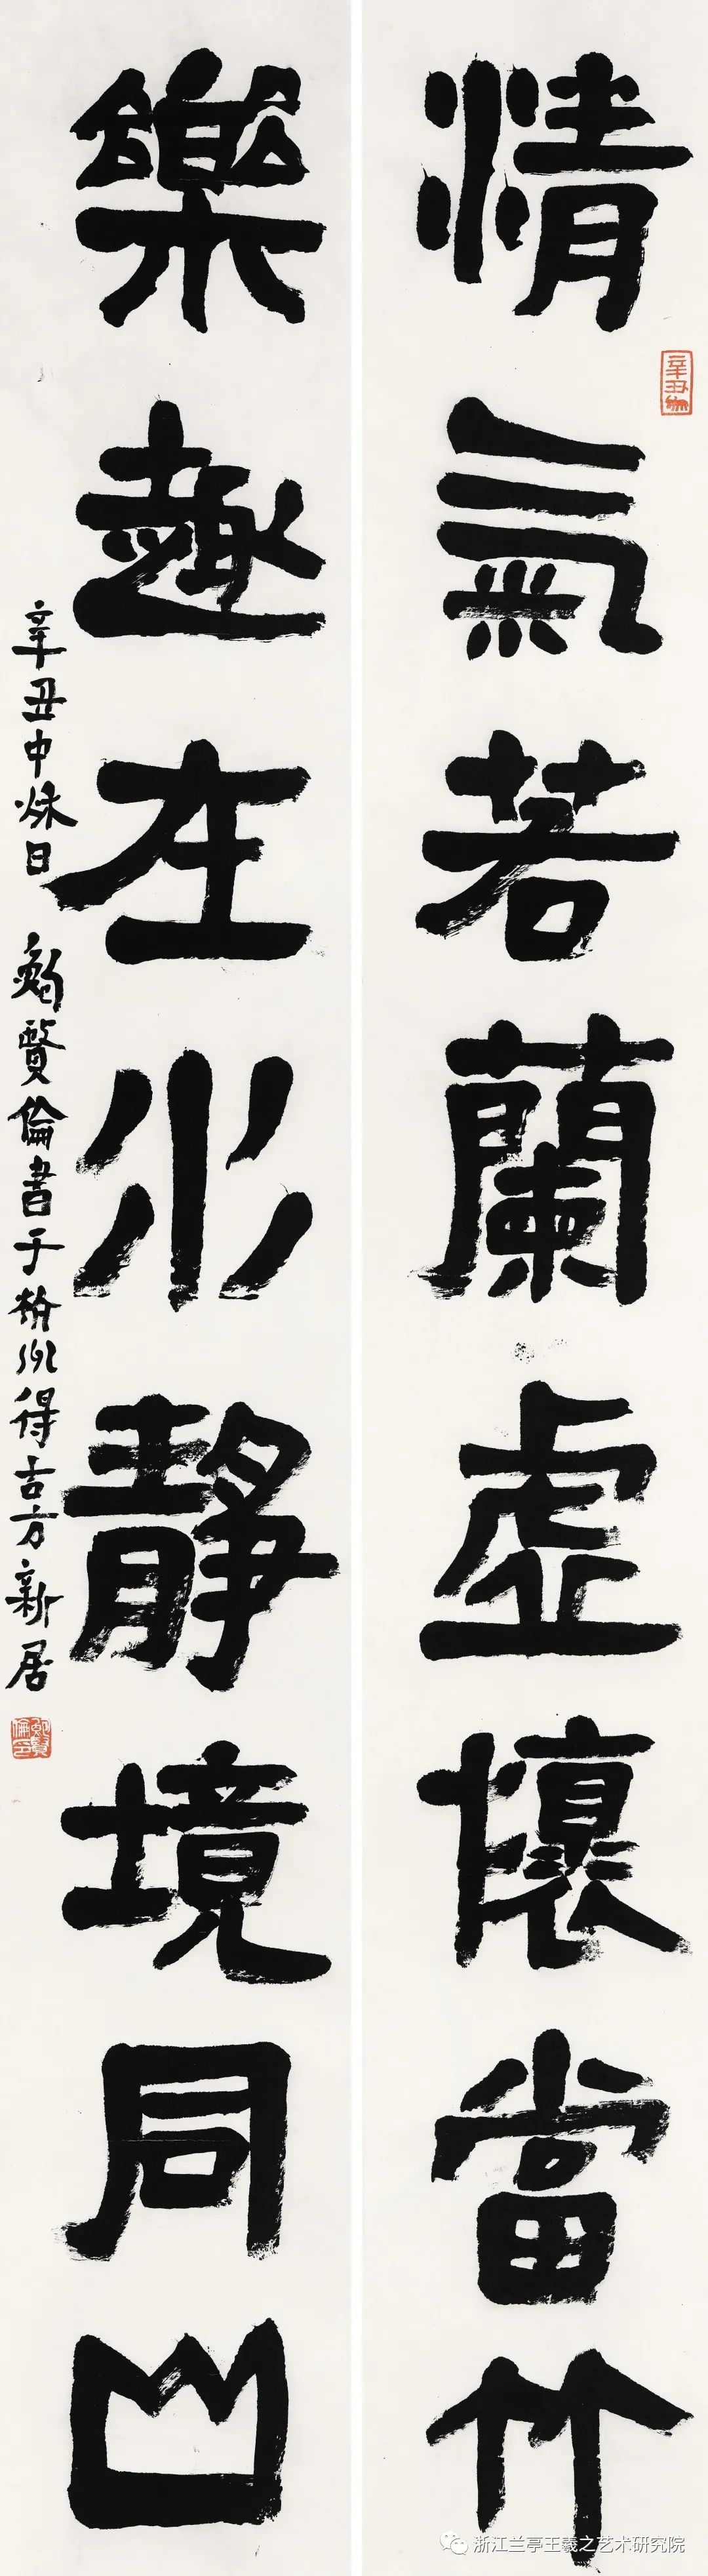 清氣若蘭虛懷當竹
樂趣在水靜境同山
辛丑中秌日 鮑賢倫書于杭州得吉方新居
鮑賢倫印
浙江兰亭王羲之艺术研究院